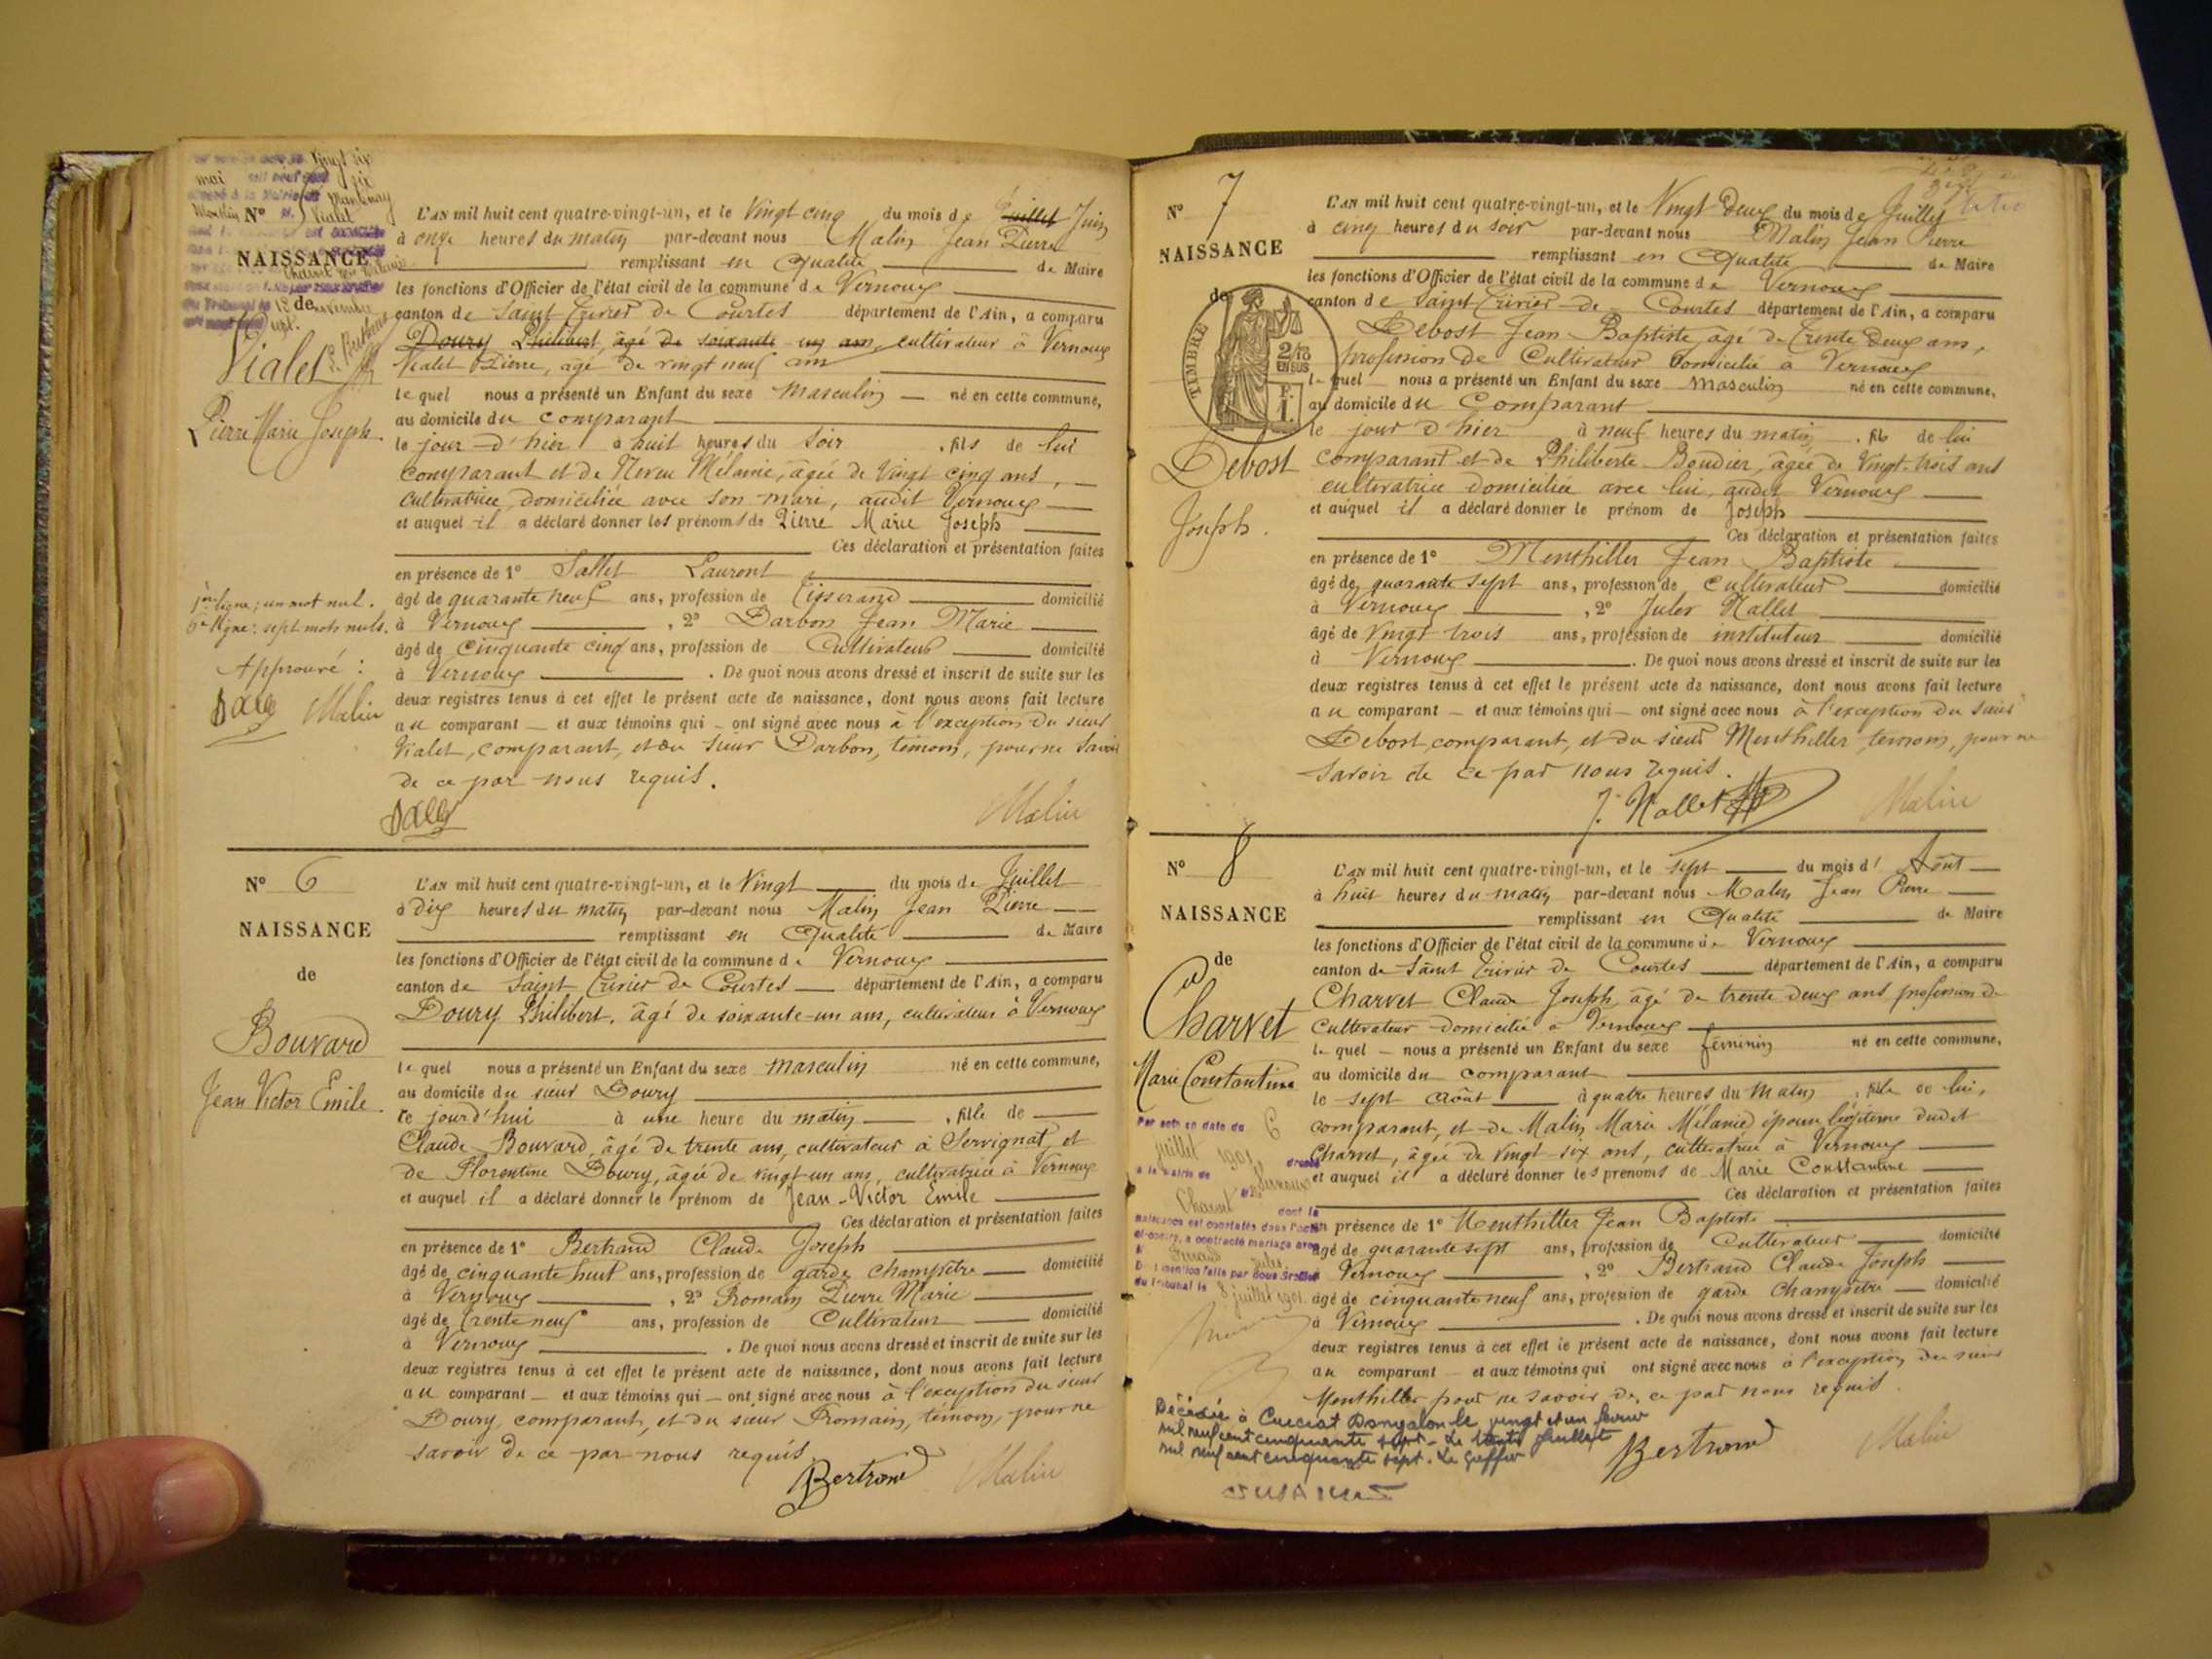 vingt six
mai
six
Mantenay
Montlin Nº 5 Vialet
NAISSANCE
de
Vialet
Pierre Marie Joseph
1ère ligne; un mot nul.
6e ligne: sept mots nuls.
Approuvé :
Malin
L'AN mil huit cent quatre-vingt-un, et le Vingt cinq du mois de Juillet Juin
à onze heures du matin par-devant nous Malin Jean Pierre
remplissant en Qualité de Maire
les fonctions d'Officier de l'état civil de la commune de Vernoux
canton de Saint Trivier de Courtes département de l'Ain, a comparu
Doury Philibert, âgé de soixante un ans, cultivateur à Vernoux
Vialet Pierre, âgé de vingt neuf ans
lequel nous a présenté un Enfant du sexe masculin né en cette commune,
au domicile du comparant
le jour d'hier à huit heures du soir, fils de lui
comparant et de Neveu Mélanie, âgée de Vingt cinq ans,
cultivatrice, domiciliée avec son mari, audit Vernoux
et auquel il a déclaré donner les prénoms de Pierre Marie Joseph
Ces déclaration et présentation faites
en présence de 1º Sallet Laurent
âgé de quarante neuf ans, profession de Tisserand domicilié
à Vernoux, 2º Darbon Jean Marie
âgé de cinquante cinq ans, profession de Cultivateur domicilié
à Vernoux. De quoi nous avons dressé et inscrit de suite sur les
deux registres tenus à cet effet le présent acte de naissance, dont nous avons fait lecture
au comparant et aux témoins qui ont signé avec nous à l'exception du sieur
Vialet, comparant, et du sieur Darbon, témoin, pour ne savoir
de ce par nous requis.
Malin
Nº 6
NAISSANCE
de
Bouvard
Jean Victor Emile.
L'AN mil huit cent quatre-vingt-un, et le Vingt du mois de Juillet
à dix heures du matin par-devant nous Malin Jean Pierre
remplissant en Qualité de Maire
les fonctions d'Officier de l'état civil de la commune de Vernoux
canton de Saint Trivier de Courtes département de l'Ain, a comparu
Doury Philibert, âgé de soixante-un ans, cultivateur à Vernoux
lequel nous a présenté un Enfant du sexe masculin né en cette commune,
au domicile du sieur Doury
le jourd'hui à une heure du matin, fils de
Claude Bouvard, âgé de trente ans, cultivateur à Servignat, et
de Florentine Doury, âgée de vingt-un ans, cultivatrice à Vernoux
et auquel il a déclaré donner le prénom de Jean-Victor Emile
Ces déclaration et présentation faites
en présence de 1º Bertrand Claude Joseph
âgé de cinquante huit ans, profession de garde champêtre domicilié
à Vernoux, 2º Romain Pierre Marie
âgé de trente neuf ans, profession de Cultivateur domicilié
à Vernoux. De quoi nous avons dressé et inscrit de suite sur les
deux registres tenus à cet effet le présent acte de naissance, dont nous avons fait lecture
au comparant et aux témoins qui ont signé avec nous à l'exception du sieur
Doury, comparant, et du sieur Romain, témoin, pour ne
savoir de ce par nous requis
Bertrand Malin
Nº 7
NAISSANCE
de
TIMBRE
2/10
EN SUS
Debost
Joseph.
L'AN mil huit cent quatre-vingt-un, et le Vingt-Deux du mois de Juillet
à cinq heures du soir par-devant nous Malin Jean Pierre
remplissant en Qualité de Maire
les fonctions d'Officier de l'état civil de la commune de Vernoux
canton de Saint Trivier de Courtes département de l'Ain, a comparu
Debost Jean Baptiste, âgé de Trente Deux ans,
profession de Cultivateur domicilié à Vernoux
lequel nous a présenté un Enfant du sexe masculin né en cette commune,
au domicile du Comparant
le jour d'hier à neuf heures du matin, fils de lui
comparant et de Philiberte Boudier, âgée de Vingt-trois ans
cultivatrice domiciliée avec lui, audit Vernoux
et auquel il a déclaré donner le prénom de Joseph
Ces déclaration et présentation faites
en présence de 1º Menthiller Jean Baptiste
âgé de quarante sept ans, profession de Cultivateur domicilié
à Vernoux, 2º Jules Nallet
âgé de Vingt trois ans, profession de instituteur domicilié
à Vernoux. De quoi nous avons dressé et inscrit de suite sur les
deux registres tenus à cet effet le présent acte de naissance, dont nous avons fait lecture
au comparant et aux témoins qui ont signé avec nous à l'exception du sieur
Debost, comparant, et du sieur Menthiller, témoin, pour ne
savoir de ce par nous requis.
J. Nallet Malin
Nº 8
NAISSANCE
de
Charvet
Marie Constantine
Par acte en date du 6
juillet 1901 dressé
à la Mairie de Vernoux
Charvet dont la
naissance est constatée dans l'acte
ci-contre, a contracté mariage avec
Jules
Mention faite par nous Greffier
du tribunal le 8 juillet 1901.
Décédée à Cuiciat Dongalon le vingt et un février
mil neuf cent cinquante sept. Le trente Juillet
mil neuf cent cinquante sept. Le Greffier
L'AN mil huit cent quatre-vingt-un, et le sept du mois d'Août
à huit heures du matin par-devant nous Malin Jean Pierre
remplissant en Qualité de Maire
les fonctions d'Officier de l'état civil de la commune de Vernoux
canton de Saint Trivier de Courtes département de l'Ain, a comparu
Charvet Claude Joseph, âgé de trente deux ans profession de
Cultivateur domicilié à Vernoux
lequel nous a présenté un Enfant du sexe féminin né en cette commune,
au domicile du comparant
le sept août à quatre heures du matin, fille de lui,
comparant, et de Malin Marie Mélanie épouse légitime dudit
Charvet, âgée de vingt-six ans, cultivatrice à Vernoux
et auquel il a déclaré donner les prénoms de Marie Constantine
Ces déclaration et présentation faites
en présence de 1º Menthiller Jean Baptiste
âgé de quarante sept ans, profession de Cultivateur domicilié
à Vernoux, 2º Bertrand Claude Joseph
âgé de cinquante neuf ans, profession de garde champêtre domicilié
à Vernoux. De quoi nous avons dressé et inscrit de suite sur les
deux registres tenus à cet effet le présent acte de naissance, dont nous avons fait lecture
au comparant et aux témoins qui ont signé avec nous à l'exception du sieur
Menthiller pour ne savoir de ce par nous requis.
Bertrand Malin